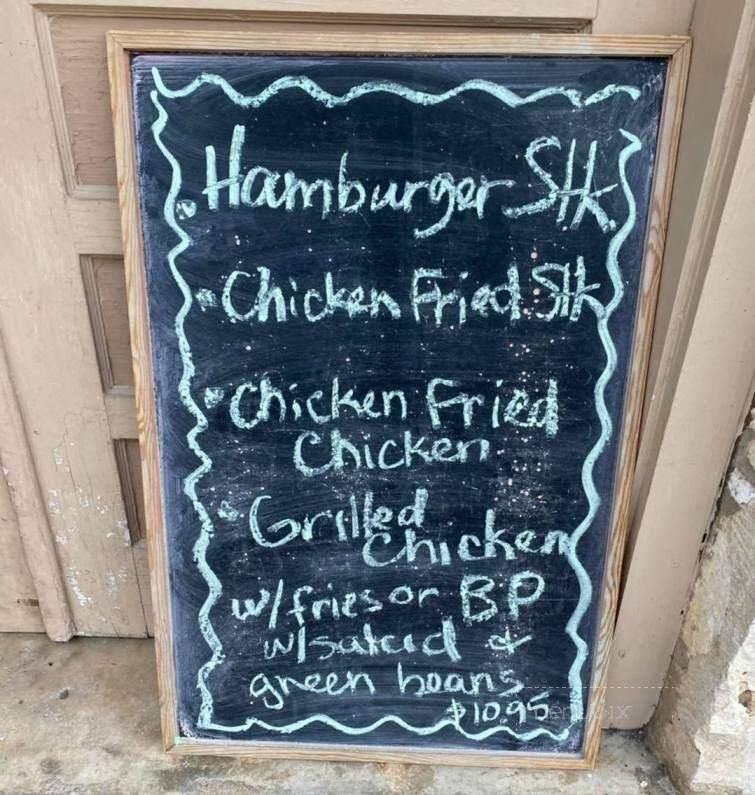 • Hamburger Stk.
• Chicken Fried Stk
• Chicken Fried
Chicken
• Grilled
Chicken
w/fries or BP
w/salad &
green beans
$10.95